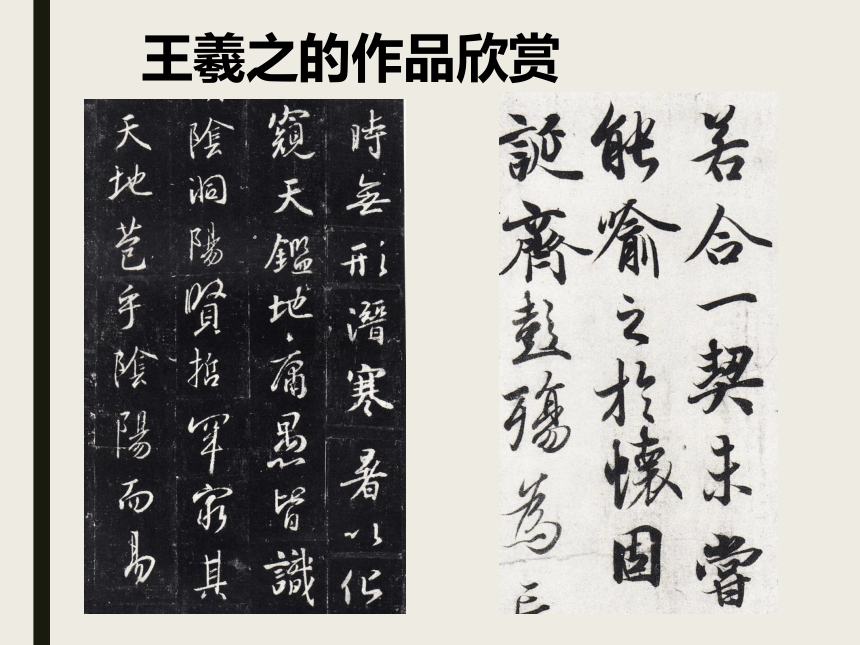 王羲之的作品欣赏
時無形潛寒暑以化
窺天鑑地庸愚皆識
陰洞陽賢哲罕窮其
天地苞乎陰陽而易
若合一契未嘗
能喻之於懷固
誕齊彭殤為